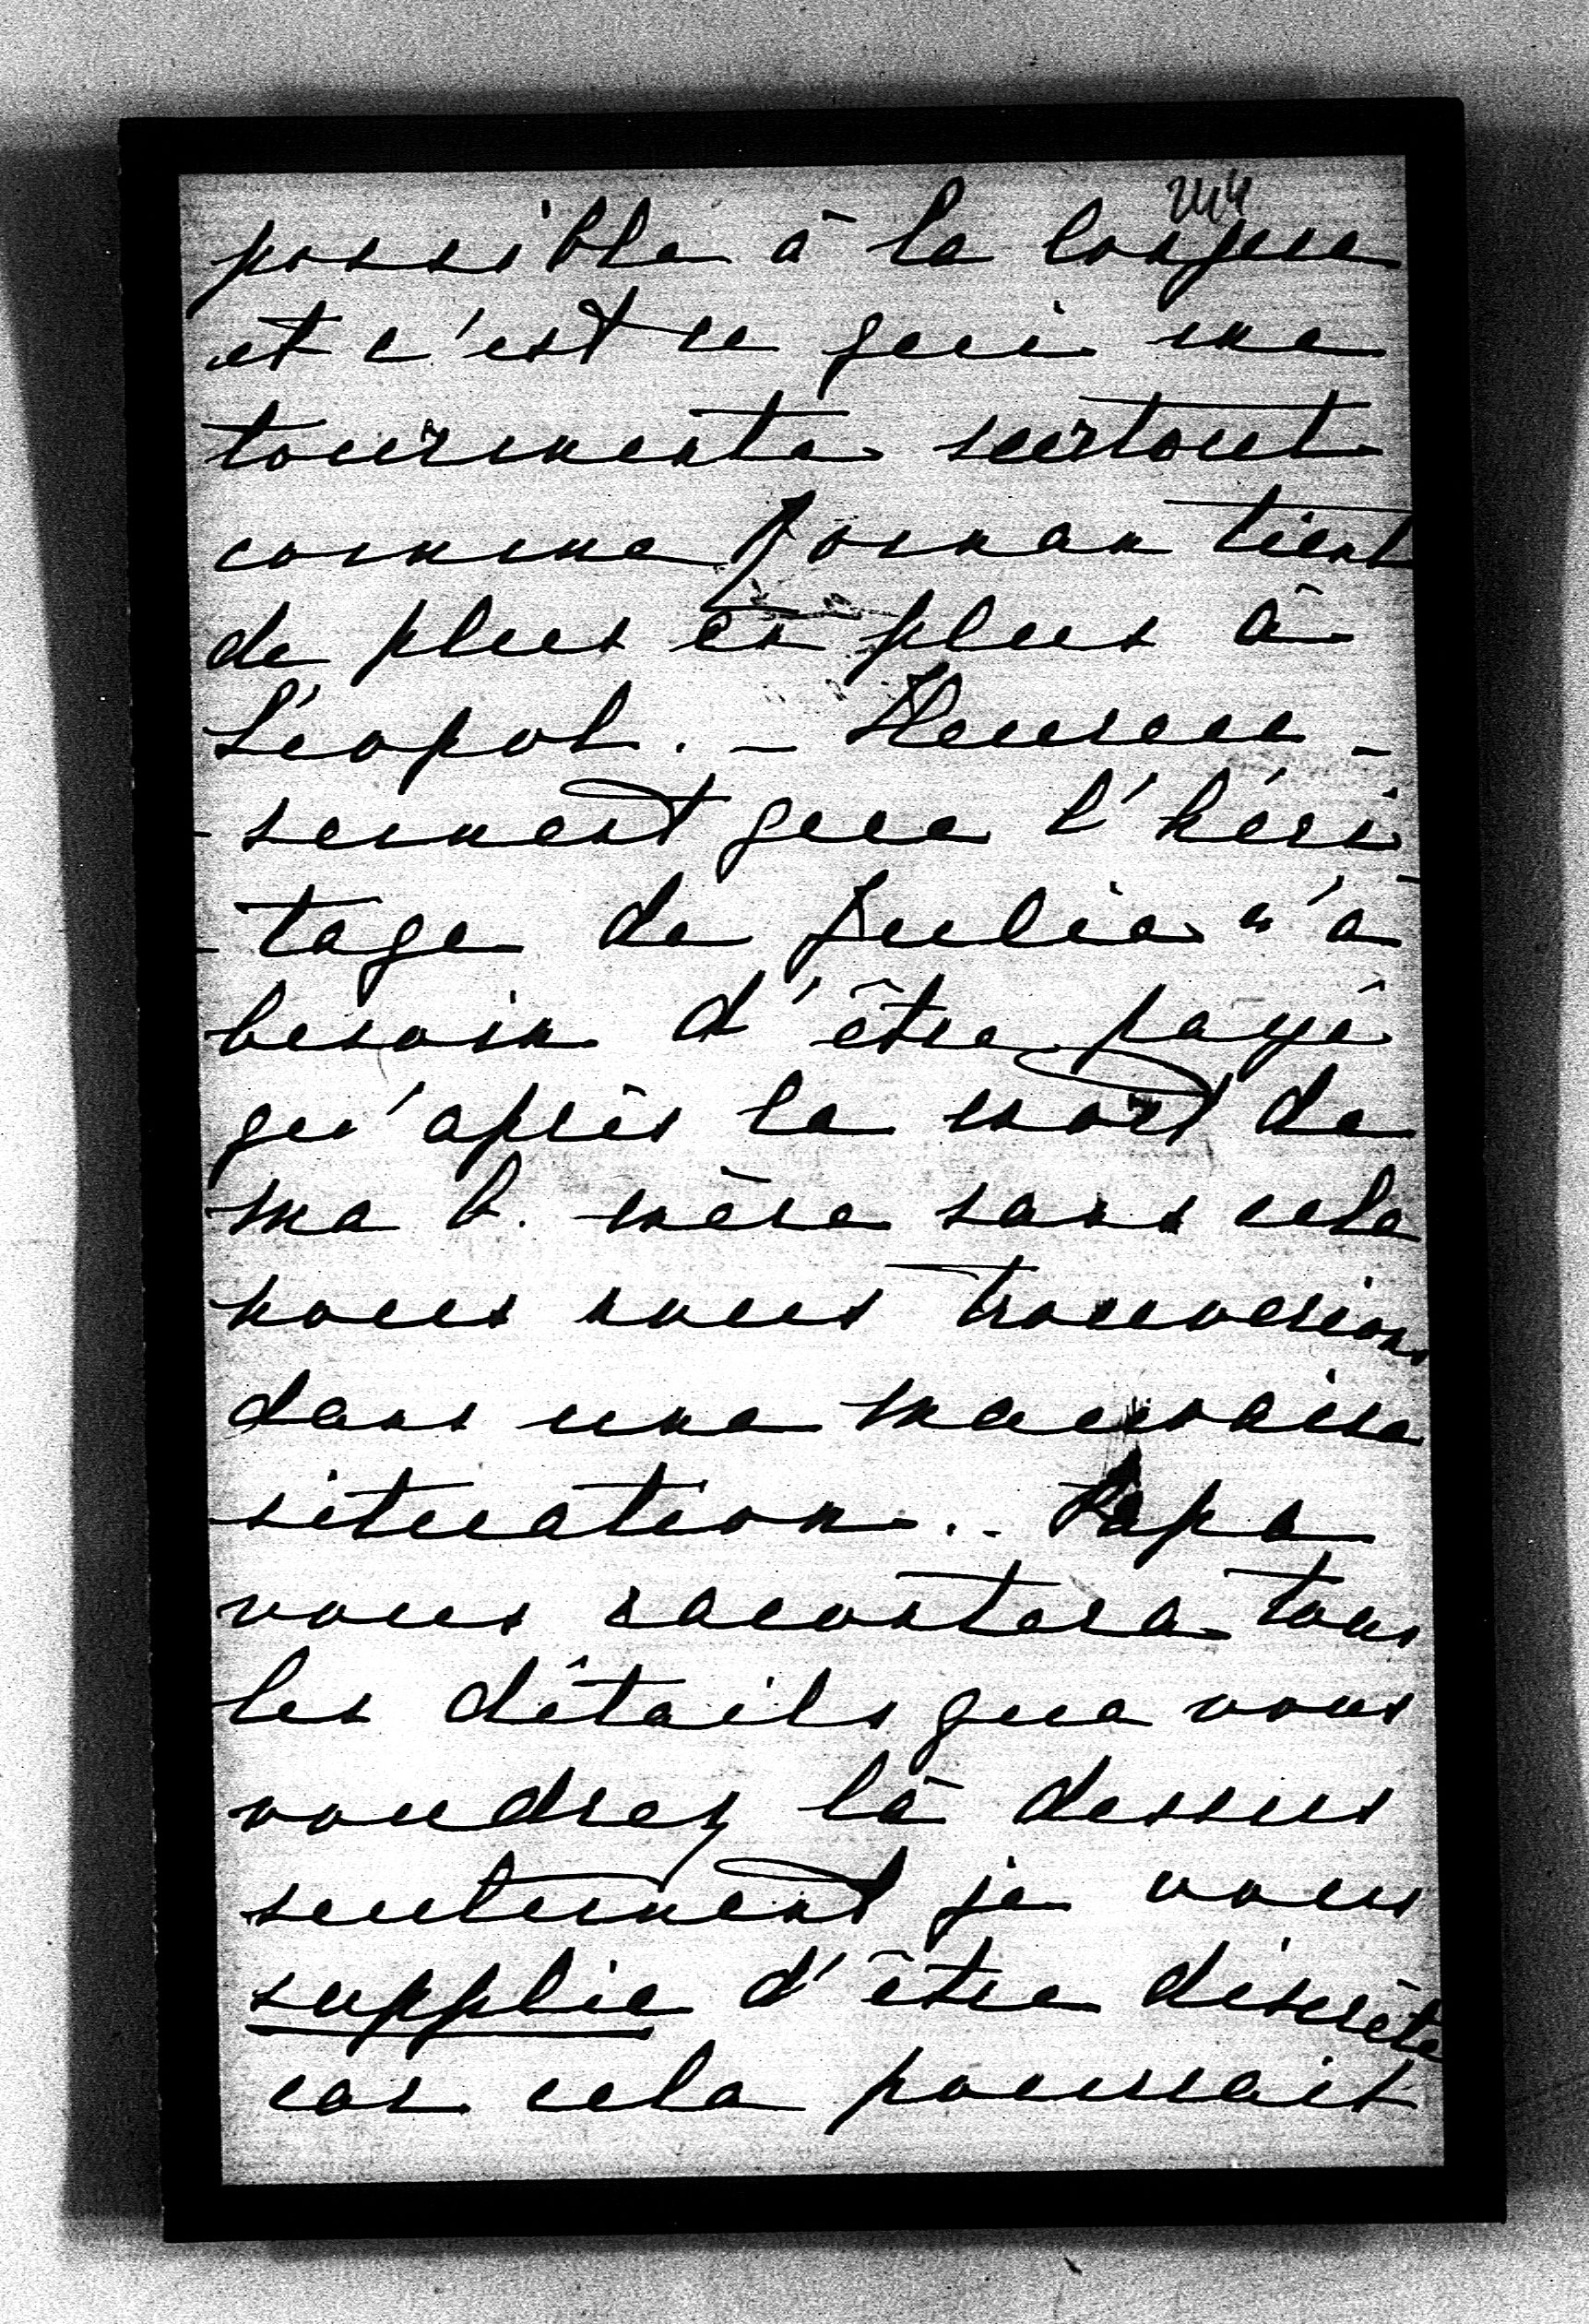 244
possible à la longue
et c'est ce qui me
tourmente surtout
comme Roman tient
de plus en plus à
Léopol. – Heureu-
-sement que l'héri-
-tage de Julie n'a
besoin d'être payé
qu'après la mort de
ma b. mère sans cela
nous nous trouverions
dans une mauvaise
situation.. Papa
vous racontera tous
les détails que vous
voudrez là dessus
seulement je vous
supplie d'être discrète
car cela pourrait